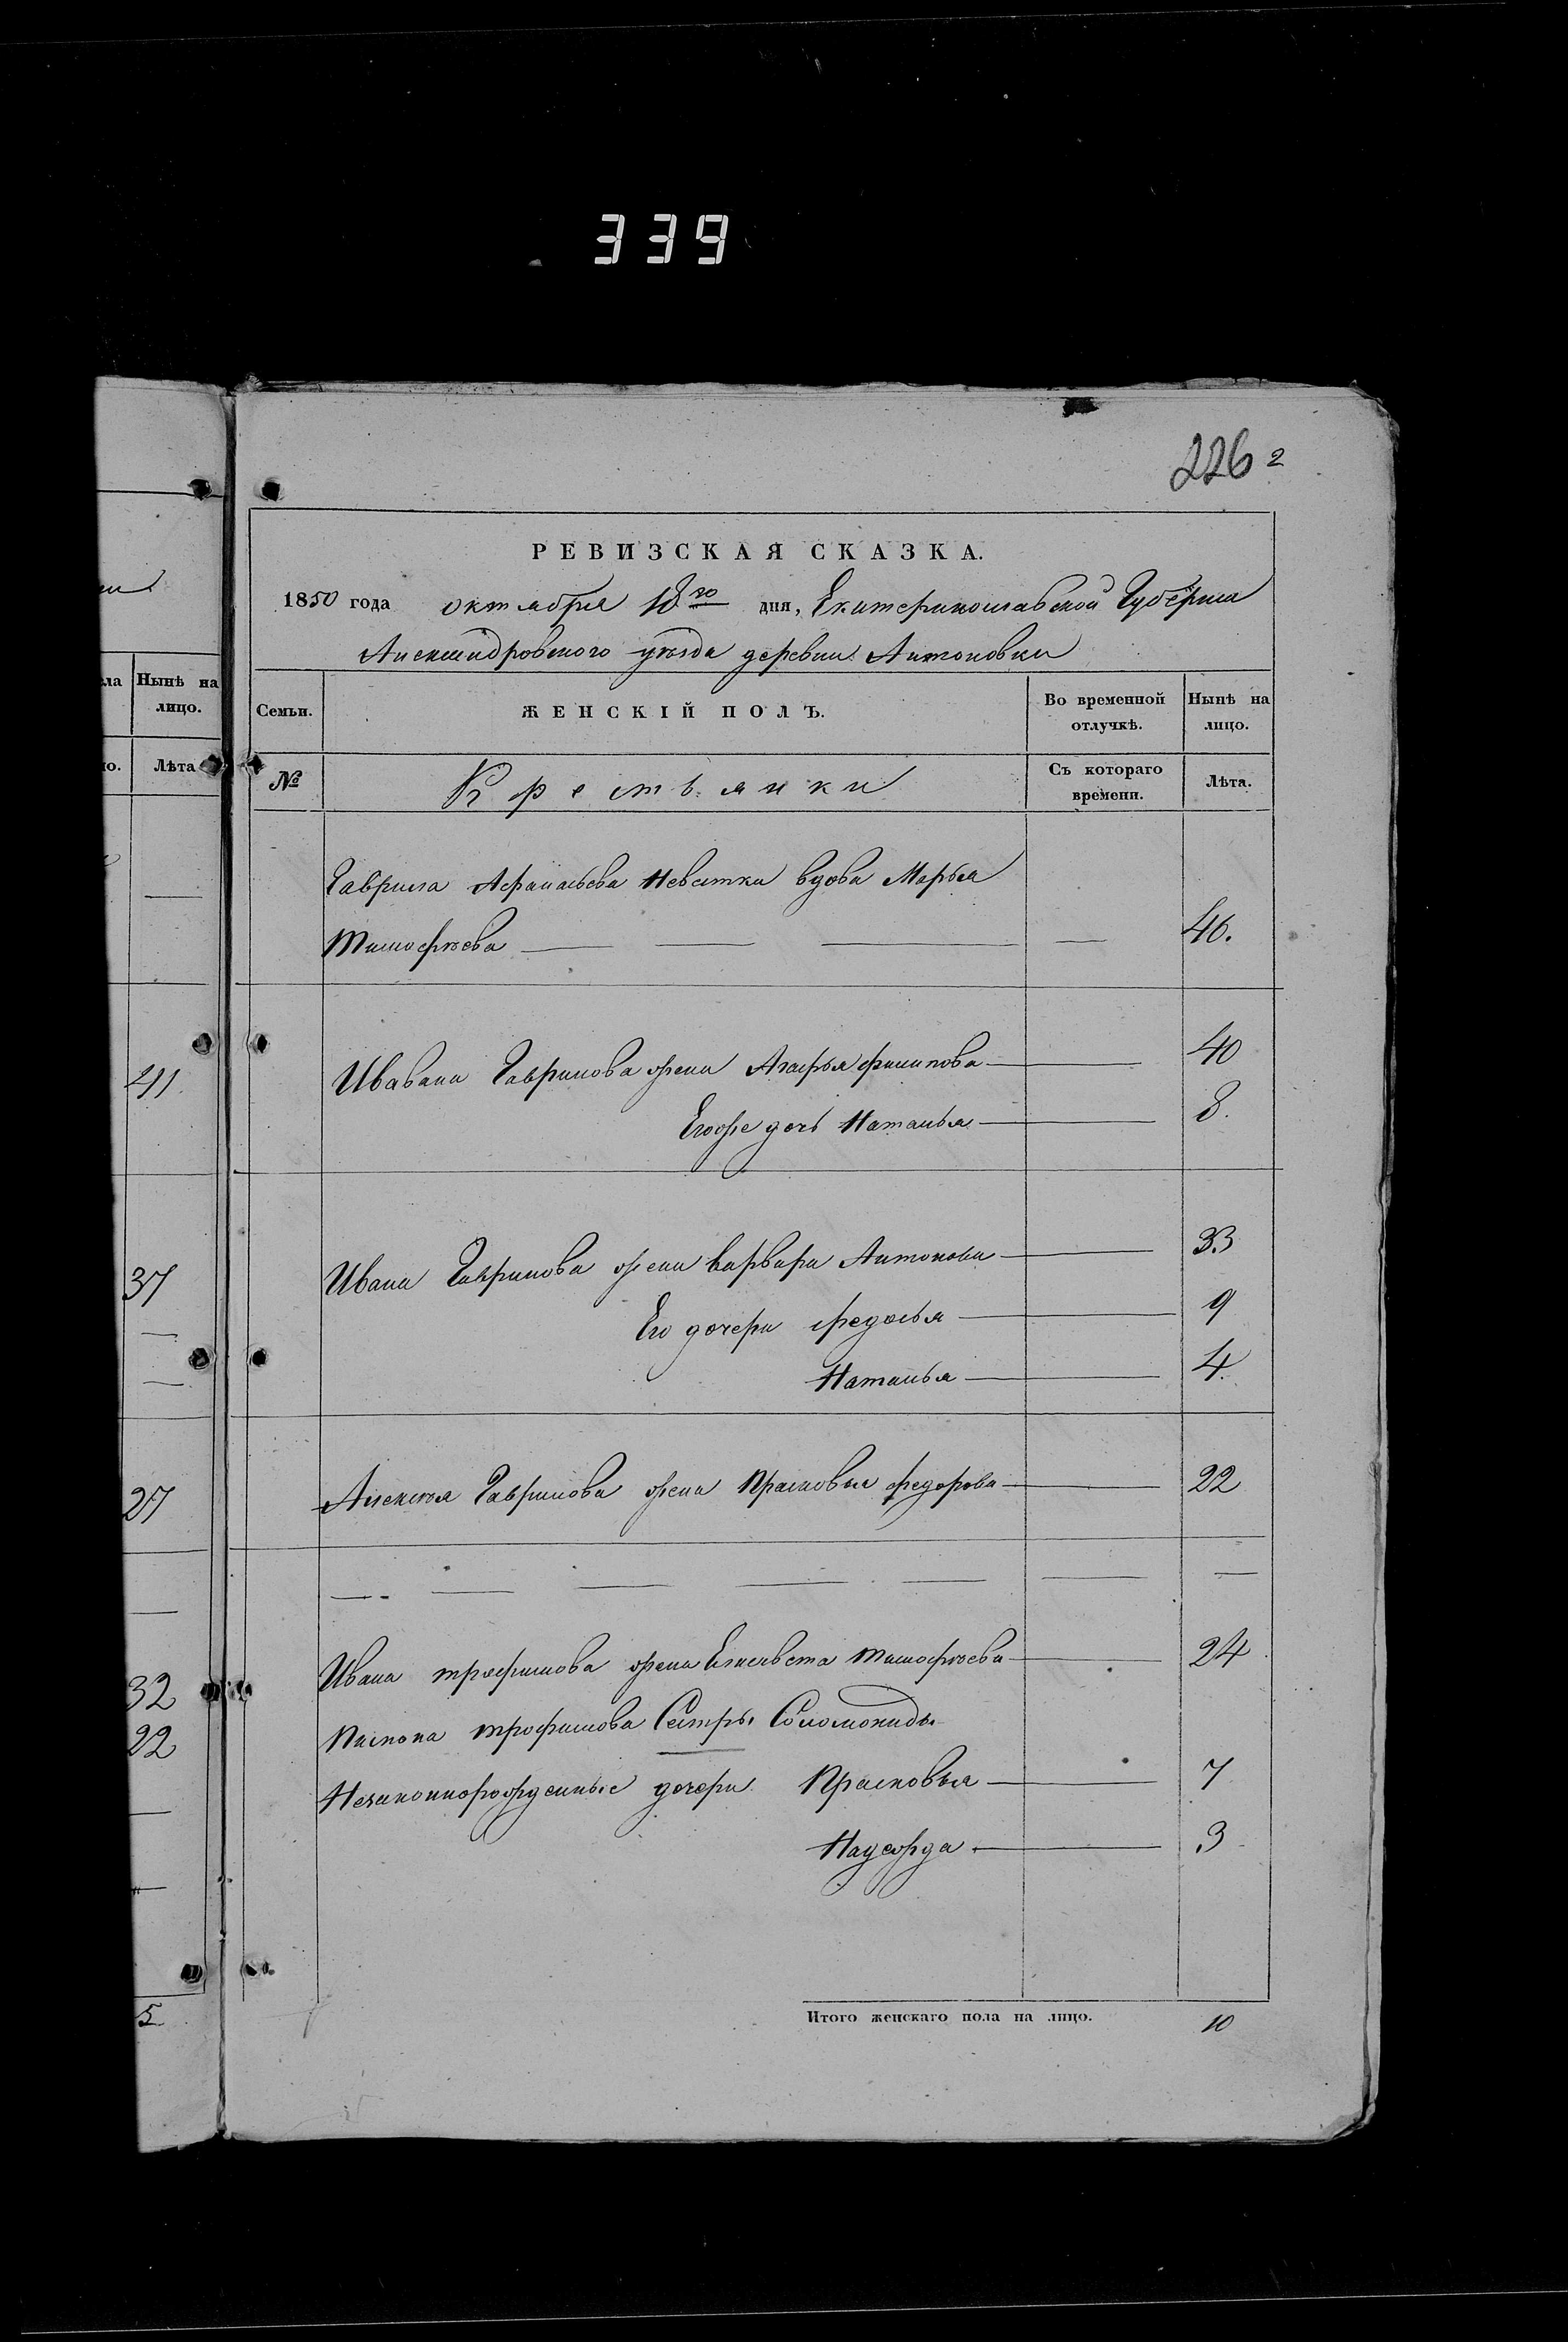 339
226 2
РЕВИЗСКАЯ СКАЗКА.
1850 года октября 18го дня, Екатеринославской Губерніи
Александровского уѣзда деревни Антоновки
ла Нынѣ на лицо.
Семьи. ЖЕНСКІЙ ПОЛЪ. Во временной отлучкѣ. Нынѣ на лицо.
ло. Лѣта
№ Крестьянки Съ котораго времени. Лѣта.
Гаврила Афанасьева Невестка вдова Марья
Тимофѣева 46.
41
Ивавана Гаврилова жена Агафья филипова 40
Егоже дочь Наталья 8.
37
Ивана Гаврилова жена варвара Антонова 33
Его дочери федосья 9
Наталья 4.
27
Алексѣя Гаврилова жена Прасковья федорова 22
32
Ивана трофимова жена Елисавета тимофѣева 24
22
трофимова Сестры Соломониды
Незаконнорожденные дочери Прасковья 7
Надежда 3
5
Итого женскаго пола на лицо. 10